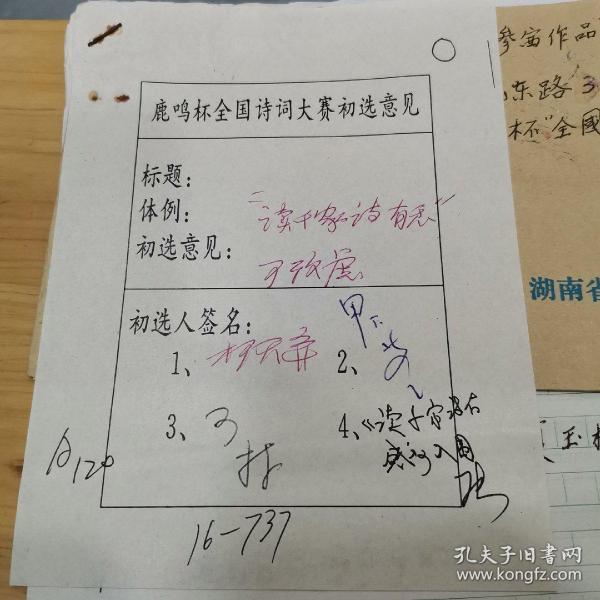 鹿鸣杯全国诗词大赛初选意见
标题：
体例：
"读千家诗有感"
初选意见：
可考虑
初选人签名：
1、
2、
甲下
3、可
4、《读千家诗有
感》可入围
A120
16-737
参赛作品
东路3
杯"全國
湖南省
玉
孔夫子旧书网
www.kongfz.com